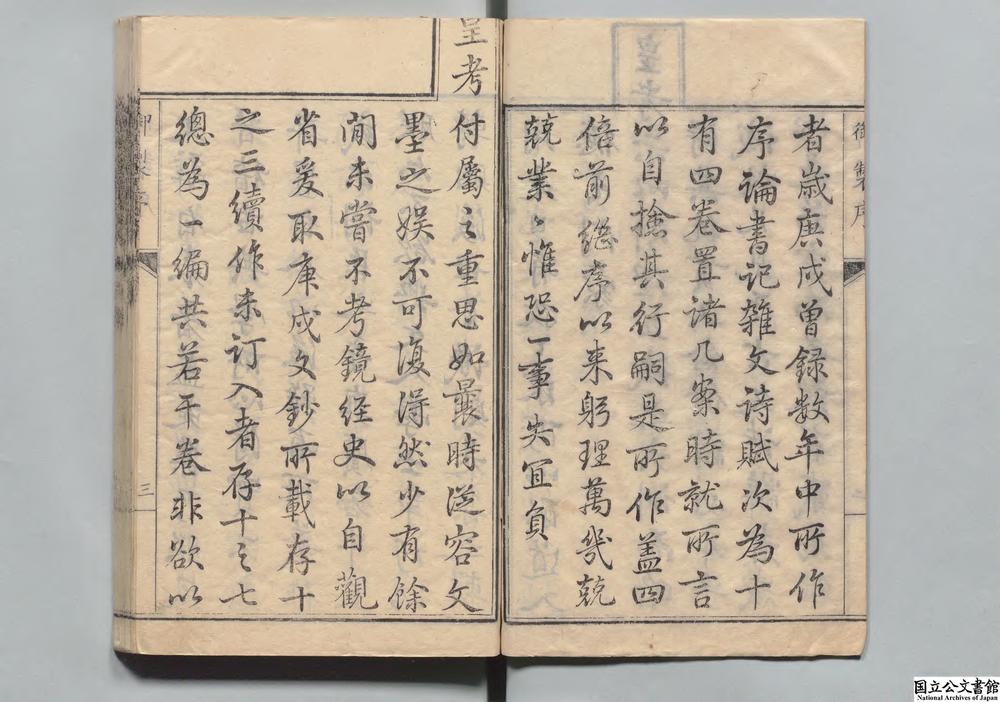 御製序
者歲庚戌曾録数年中所作
序論書記雜文詩賦次為十
有四卷置诸几案時就所言
以自撿其行嗣是所作盖四
倍前继序以来躬理萬幾兢
兢業〻惟恐一事失宜負
皇考
付屬之重思如曩時從容文
墨之娱不可復得然少有餘
閒未嘗不考鏡经史以自觀
省爰取庚戌文鈔所載存十
之三續作未订入者存十之七
總為一編共若干卷非欲以
三
国立公文書館
National Archives of Japan